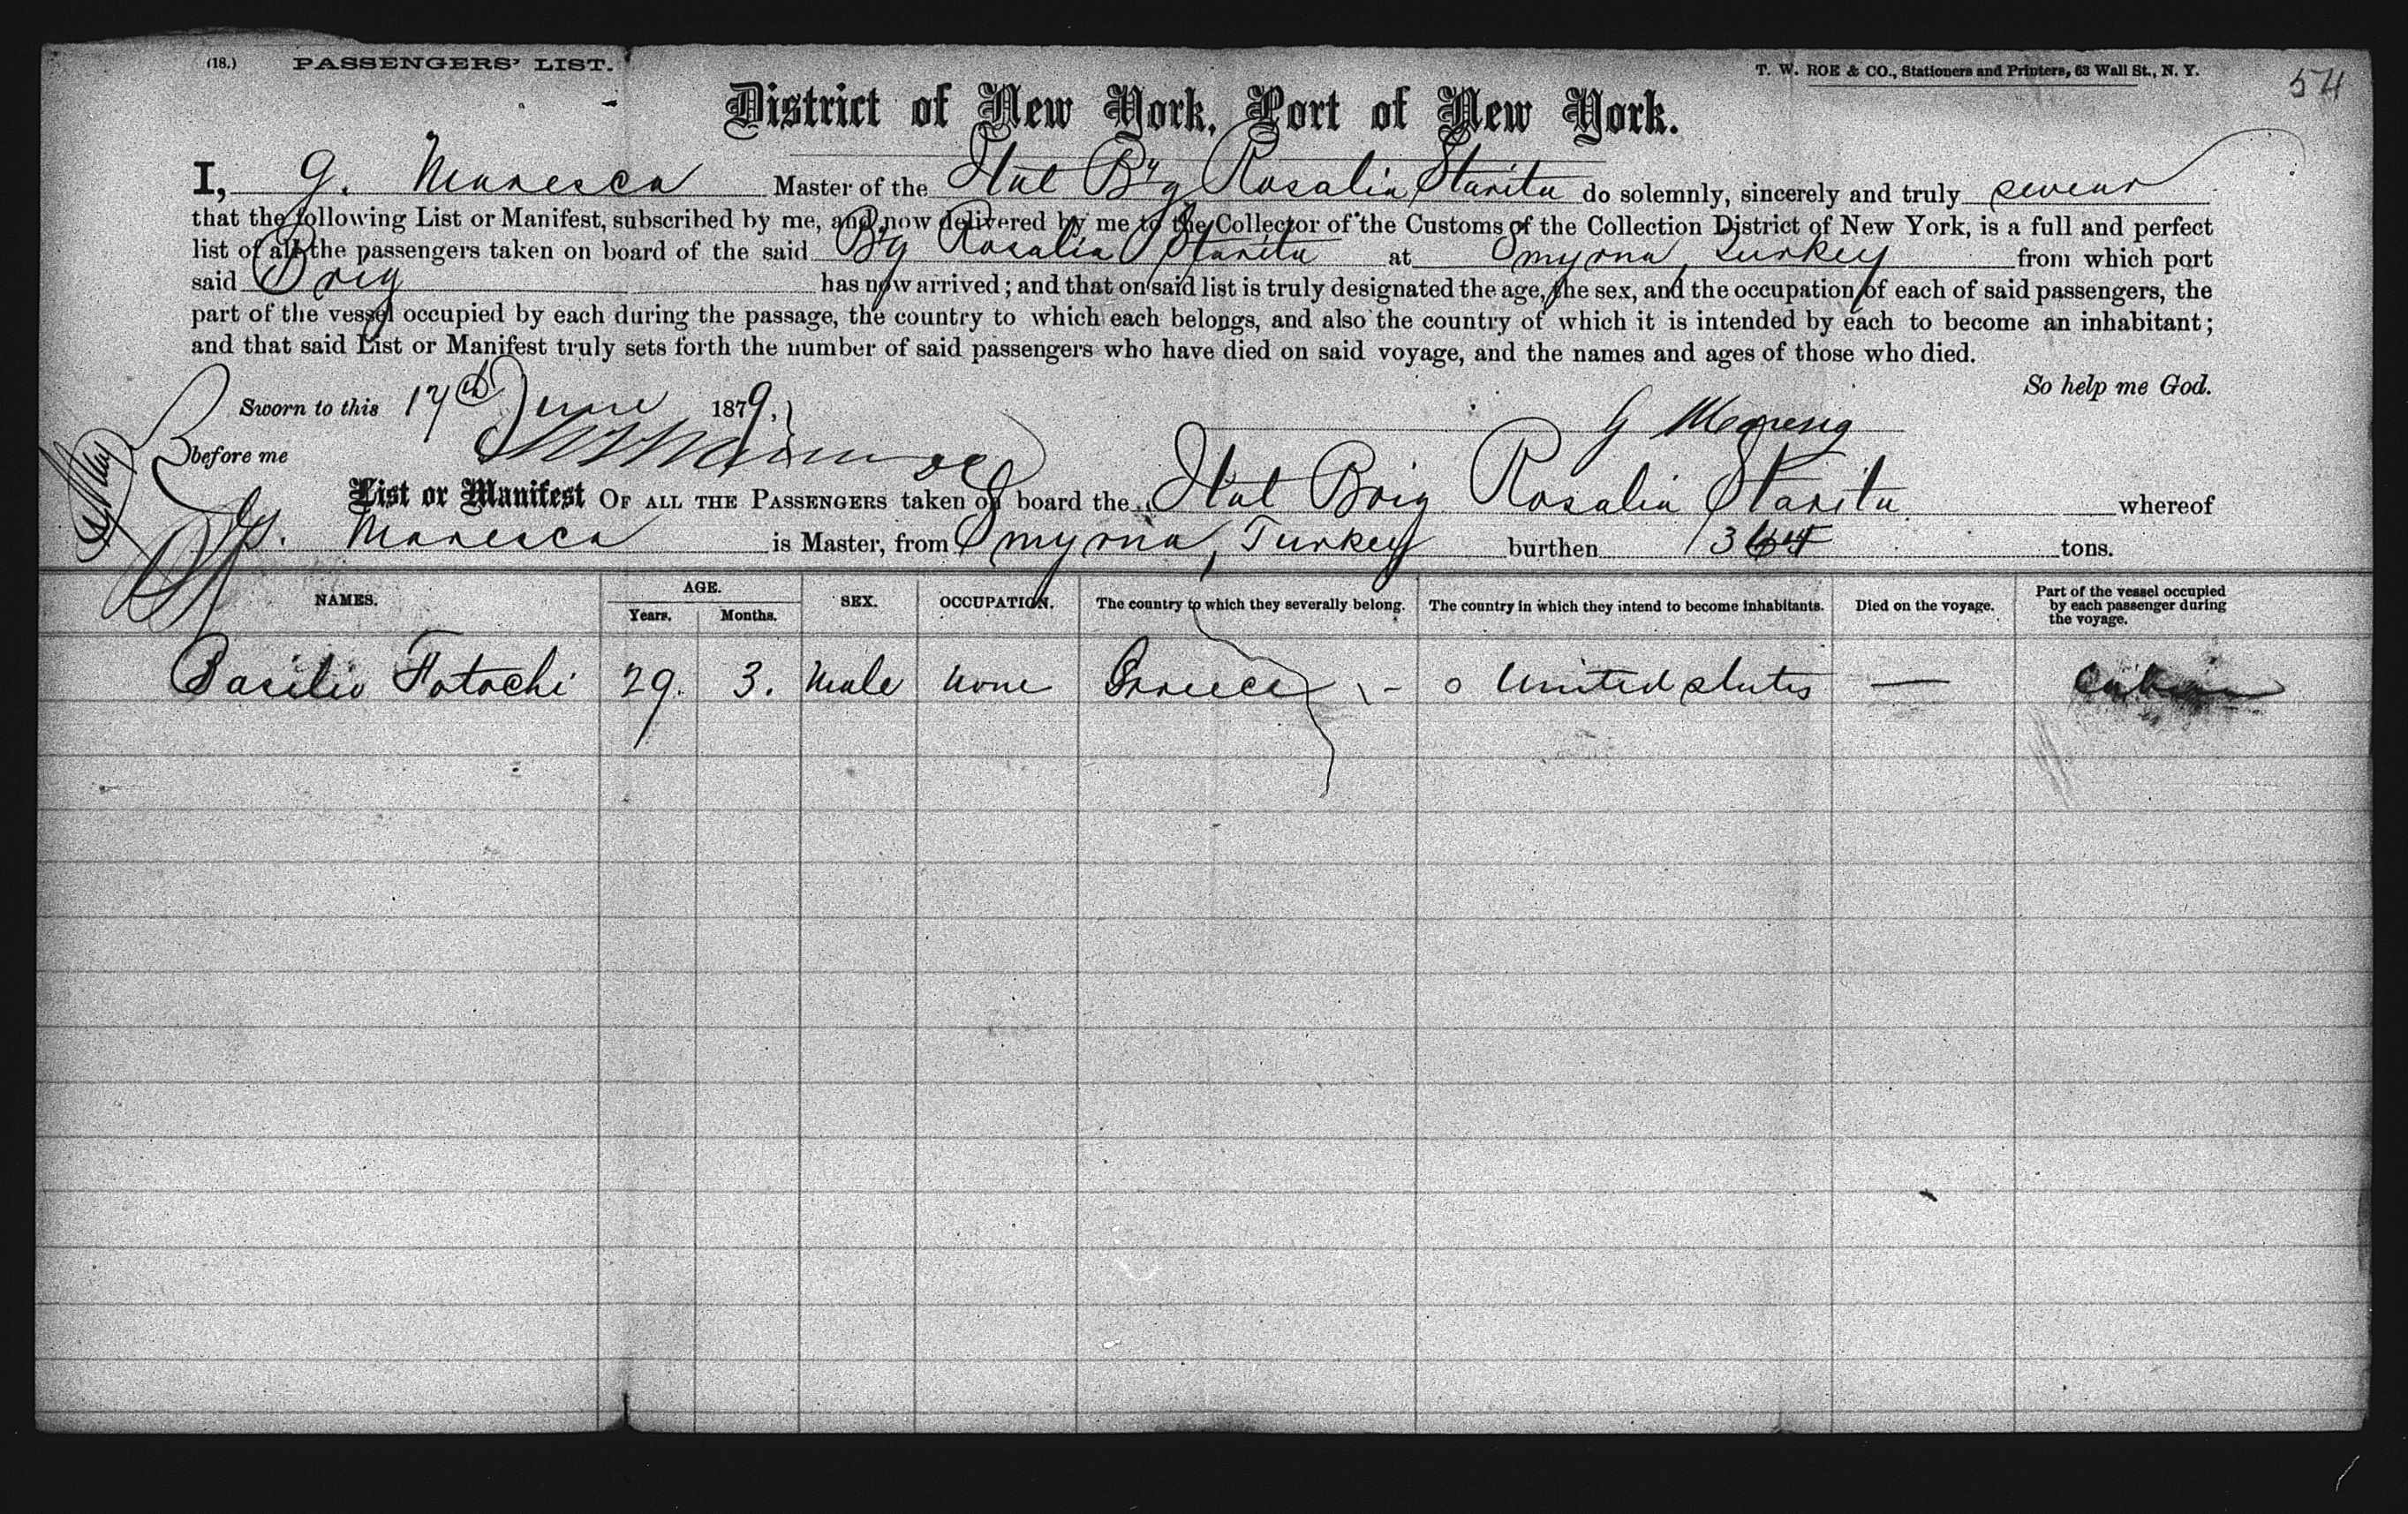 (18.) PASSENGERS' LIST.
T. W. ROE & CO., Stationers and Printers, 63 Wall St., N. Y.
54
District of New York, Port of New York.
I, G. Maresca Master of the Ital Brg Rosalia Starita do solemnly, sincerely and truly swear
that the following List or Manifest, subscribed by me, and now delivered by me to the Collector of the Customs of the Collection District of New York, is a full and perfect
list of all the passengers taken on board of the said Brg Rosalia Starita at Smyrna, Turkey from which port
said Brig has now arrived; and that on said list is truly designated the age, the sex, and the occupation of each of said passengers, the
part of the vessel occupied by each during the passage, the country to which each belongs, and also the country of which it is intended by each to become an inhabitant;
and that said List or Manifest truly sets forth the number of said passengers who have died on said voyage, and the names and ages of those who died.
So help me God.
Sworn to this 17th June 1879.
G Maresca
before me
List or Manifest OF ALL THE PASSENGERS taken on board the Ital Brig Rosalia Starita whereof
G. Maresca is Master, from Smyrna, Turkey burthen tons.
NAMES. AGE. SEX. OCCUPATION. The country to which they severally belong. The country in which they intend to become inhabitants. Died on the voyage. Part of the vessel occupied by each passenger during the voyage.
Years. Months.
Basilio Fotochi 29. 3. Male None Greece - United States — Cabin